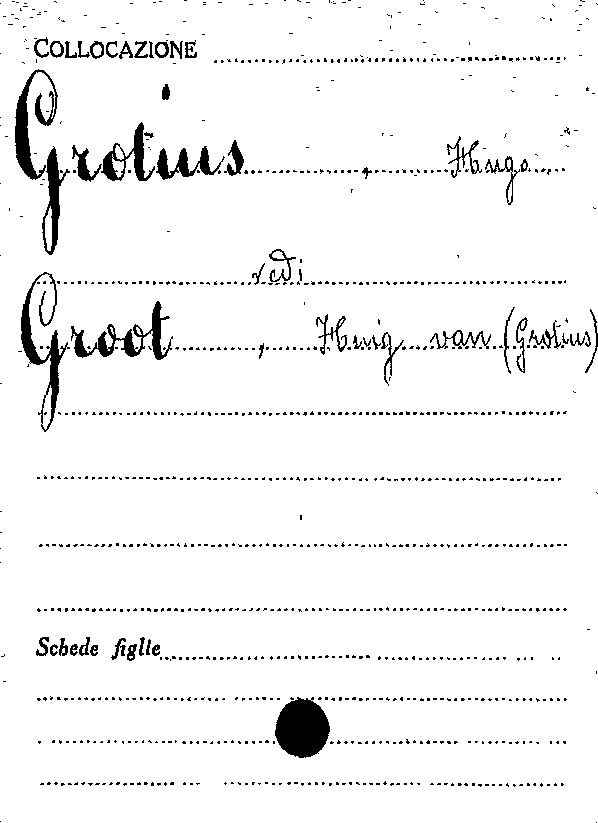 COLLOCAZIONE
Grotius, Hugo
vedi
Groot, Huig van (Grotius)
Schede figlie